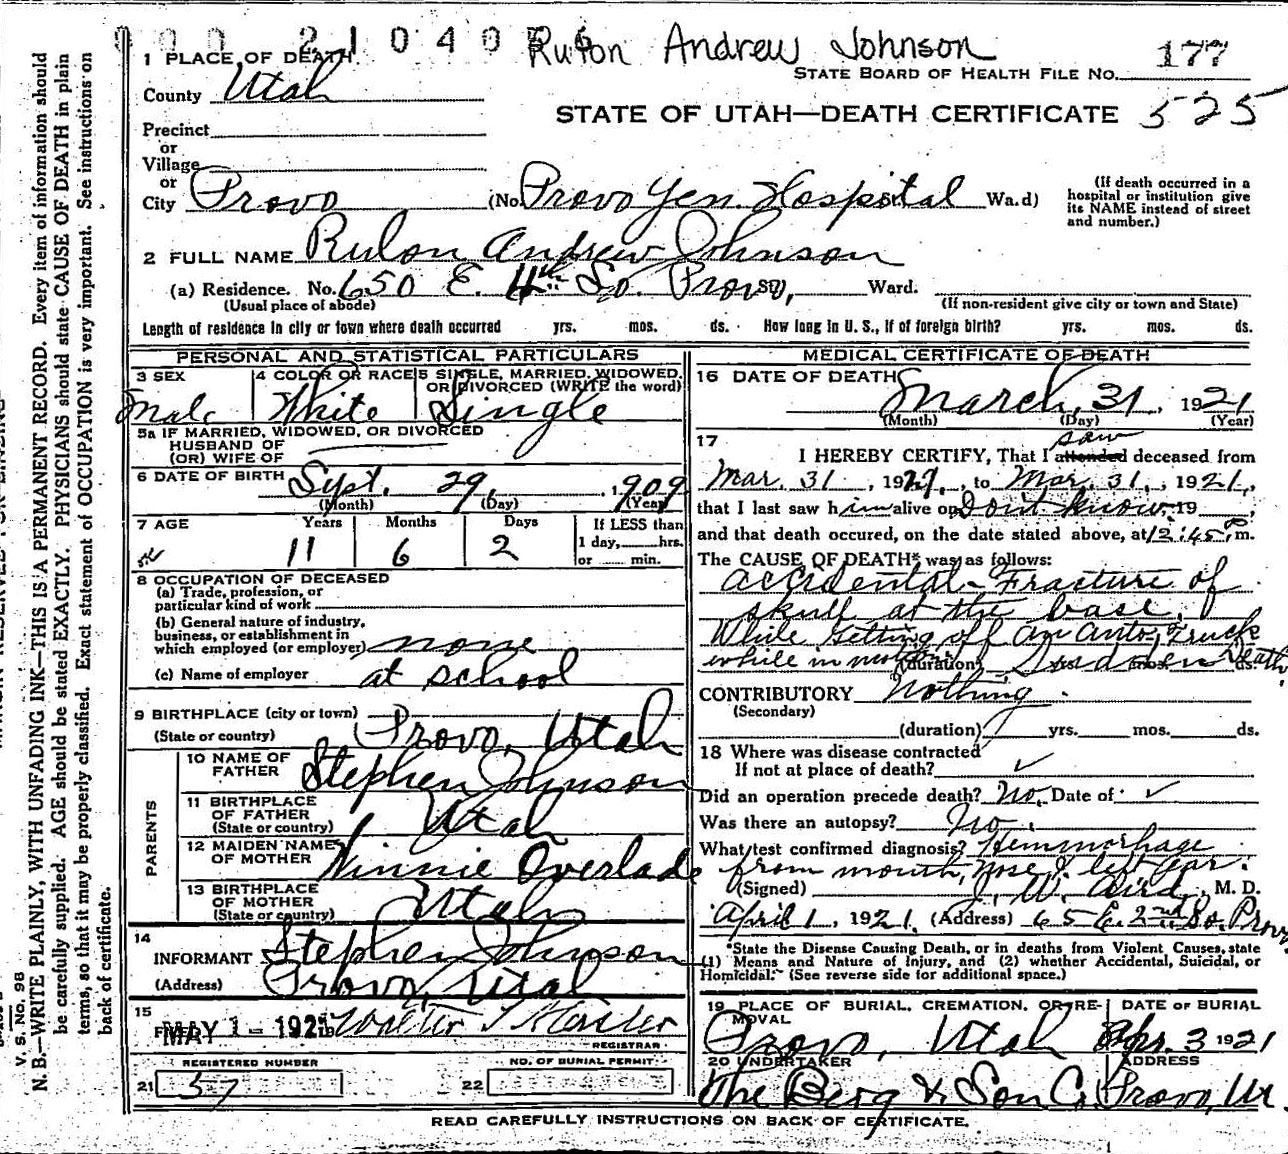 2104056 Rulon Andrew Johnson 177
1 PLACE OF DEATH
STATE BOARD OF HEALTH FILE NO.
County Utah
STATE OF UTAH—DEATH CERTIFICATE 525
Precinct
or
Village
or
City Provo (No. Provo Gen. Hospital Wa.d)
(If death occurred in a
hospital or institution give
its NAME instead of street
and number.)
2 FULL NAME Rulon Andrew Johnson
(a) Residence. No. 650 E. 4th So. Provo, St., Ward.
(Usual place of abode) (If non-resident give city or town and State)
Length of residence in city or town where death occurred yrs. mos. ds. How long in U. S., if of foreign birth? yrs. mos. ds.
PERSONAL AND STATISTICAL PARTICULARS
3 SEX 4 COLOR OR RACE 5 SINGLE, MARRIED, WIDOWED,
OR DIVORCED (WRITE the word)
Male White Single
5a IF MARRIED, WIDOWED, OR DIVORCED
HUSBAND OF
(OR) WIFE OF
6 DATE OF BIRTH Sept. 29, 1909
(Month) (Day) (Year)
7 AGE Years Months Days If LESS than
1 day, hrs.
or min.
11 6 2
8 OCCUPATION OF DECEASED
(a) Trade, profession, or
particular kind of work
(b) General nature of industry,
business, or establishment in
which employed (or employer) none
(c) Name of employer at school
9 BIRTHPLACE (city or town)
(State or country) Provo, Utah
PARENTS
10 NAME OF
FATHER Stephen Johnson
11 BIRTHPLACE
OF FATHER
(State or country) Utah
12 MAIDEN NAME
OF MOTHER Winnie Overlade
13 BIRTHPLACE
OF MOTHER
(State or country) Utah
14
INFORMANT Stephen Johnson
(Address) Provo, Utah
15
MAY 1 - 1921 Walter T
REGISTRAR
REGISTERED NUMBER NO. OF BURIAL PERMIT
21 57 22
MEDICAL CERTIFICATE OF DEATH
16 DATE OF DEATH
March, 31, 1921
(Month) (Day) (Year)
17 saw
I HEREBY CERTIFY, That I attended deceased from
Mar. 31, 1921, to Mar. 31, 1921,
that I last saw him alive on Dont know, 19
and that death occured, on the date stated above, at 12:45 P m.
The CAUSE OF DEATH* was as follows:
Accidental - Fracture of
skull at the base,
While getting off an auto, Truck
while in motion (duration) Sudden Death yrs. mos. ds.
CONTRIBUTORY Nothing.
(Secondary)
(duration) yrs. mos. ds.
18 Where was disease contracted
If not at place of death? ✓
Did an operation precede death? No. Date of ✓
Was there an autopsy? No.
What test confirmed diagnosis? Hemmorhage
from mouth, nose & left ear.
(Signed) J. W. Aird, M. D.
April 1, 1921. (Address) 65 E. 2nd So. Provo
*State the Disease Causing Death, or in deaths from Violent Causes, state
(1) Means and Nature of Injury, and (2) whether Accidental, Suicidal, or
Homicidal." (See reverse side for additional space.)
19 PLACE OF BURIAL, CREMATION, OR RE-
MOVAL
DATE OF BURIAL
Provo, Utah Apr. 3 1921
20 UNDERTAKER ADDRESS
The Berg & Son Co. Provo, Ut.
READ CAREFULLY INSTRUCTIONS ON BACK OF CERTIFICATE.
V. S. No. 98
N. B.—WRITE PLAINLY, WITH UNFADING INK—THIS IS A PERMANENT RECORD. Every item of information should
be carefully supplied. AGE should be stated EXACTLY. PHYSICIANS should state CAUSE OF DEATH in plain
terms, so that it may be properly classified. Exact statement of OCCUPATION is very important. See instructions on
back of certificate.